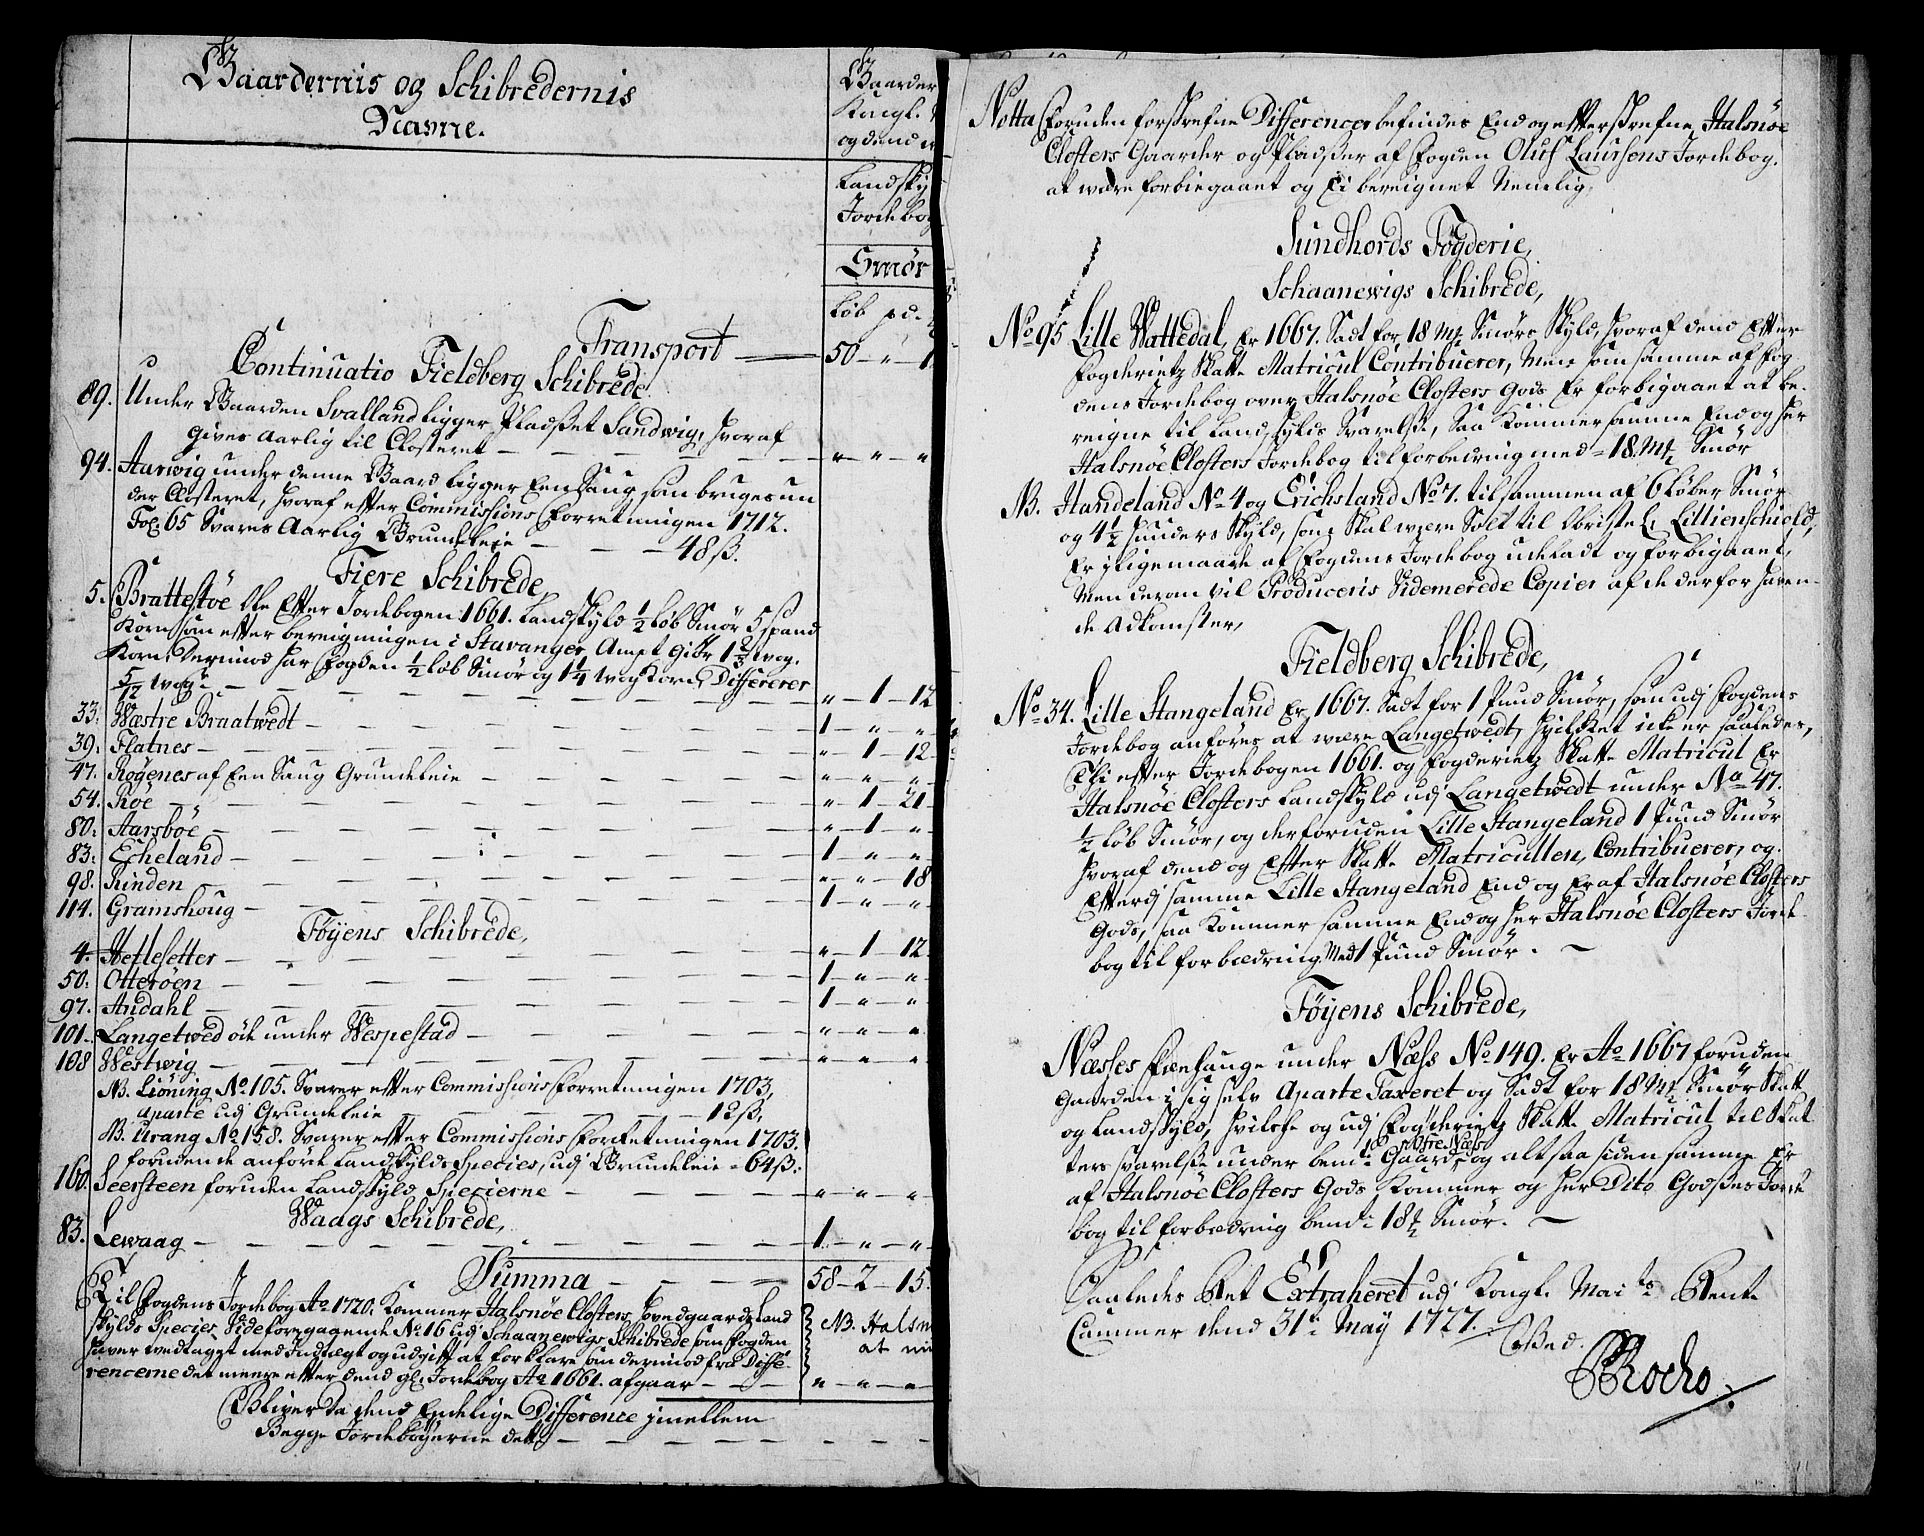 Gaardernis og Schibredernis
Nafne.
Gaarder
Kongl.
og dend
Landsky
Jordebog
Smør
Løb pd.
Transport — 50 — „ — 1
Continuatio Fieldberg Schibrede
89. Under Gaarden Svalland ligger Pladset Sandwig, hvoraf
gives Aarlig til Closteret — — — — „ — „ — „
94. Aarwig under denne Gaard ligger Een Saug som bruges un
der Closteret, hvoraf efter Commissions Forretningen 1712.
Fol: 65 Svares Aarlig Grundeleje — — — 48 ß.
Fiere Schibrede,
5. Brattestöe Øde Efter Jordebogen 1661. Landskyld ½ Løb Smör 5 spand
Korn som efter bereigningen i Stavanger Ampt giör 1 2/3 wog.
Korn, Derimod har Fogden ½ løb Smör og 1¼ wog Korn, Differerer
5/12 wog — — — — „ — 1 — 12
33. Wæstre Braatwedt — — — 1 — „ — „
39. Flatnes — — — „ — 1 — 12
47. Røgenes af Een Saug Grundeleie — — — „ — „ — „
54. Röe — — — „ — 1 — 21
80. Aarsböe — — — „ — 1 — „
83. Echeland — — — 1 — „ — „
98. Rinden — — — „ — „ — 18
114. Gramshoug — — — 1 — „ — „
Føyens Schibrede,
4. Hetlesetter — — — „ — 1 — 12
50. Otteröen — — — 1 — „ — „
97. Andahl — — — 1 — „ — „
101. Langetwed öde under Wespestad — — — „ — „ — „
108 Westwig — — — „ — „ — „
NB. Lióning No 105. Svarer efter Commissions Forretningen 1703,
aparte udj Grundeleie — — — 12 ß,
NB. Urang No 158. Svarer efter Commissions Forretningen 1703.
foruden de anförte Landskylds Species, udj Grundeleie = 64 ß.
160. Seersteen foruden Landskyld Specierne — — — „ — „ — „
Waags Schibrede,
83. Lewaag — — — 1 — „ — „
Summa — — — 58 — 2 — 15.
Til Fogdens Jordebog Ao 1720. Kommer Halsnöe Closters Hovedgaards Land
skylds Species, Vide foregaaende No 16 udj Schaanewigs Schibrede som Fogden
haver vedtaget med Indtægt og udgift at forklare som derimod fra Diffe-
rencerne det meere efter dend gl. Jordebog Ao 1661. afgaar — — „ — „ — „
NB. Halsn
at
Bliver da dend Endelige Difference jmellem
Begge Jordebøgerne dette — — —
Notta Foruden forskrefne Differencer befindes End og efterskrefne Halsnöe
Closters Gaarder og Pladser af Fogden Oluf Laursens Jordebog.
at være forbiegaaet og Ei bereignet Nemlig,
Sundhords Fögderie,
Schaanewigs Schibrede,
No 95 Lille Wattedal, Er 1667. Sadt for 18 mk Smörs Skyld, hvoraf dend Efter
Fogderietz Skatte Matricul Contribuerer, Men som samme af Fog
dens Jordebog over Halsnöe Closters Gods Er forbigaaet at be-
reigne til Landskylds Svarelse, Saa Kommer samme End og her
Halsnöe Closters Jordebog til forbedring med = 18. mk Smör
NB. Handeland No 4 og Erichsland No 7. tilsammen af 6 Løber Smör
og 4½ hunders Skyld, som Skal være Solt til Obriste L. Lillienschiold,
Er i Ligemaade af Fogdens Jordebog udeladt og forbigaaet,
Men derom vil Produceris Videmerede Copier af de derfor haven-
de Adkomster,
Fieldberg Schibrede,
No 34. Lille Stangeland Er 1667. Sadt for 1 Pund Smör, som udj Fogdens
Jordebog anföres at være Langetwedt, hvilket icke er saaledes,
Thi efter Jordebogen 1661. og Fogderietz Skatte Matricul Er
Halsnöe Closters Landskyld udj Langetwedt under No 47.
½ Løb Smör, og der foruden Lille Stangeland 1 Pund Smör
hvoraf dend og Efter Skatte Matricullen, Contribuerer, og
Efterdj samme Lille Stangeland End og Er af Halsnöe Closters
Gods, saa Kommer samme End og her Halsnöe Closters Jorde
bog til forbedring Med 1 Pund Smör. —
Föyens Schibrede,
Næsses Fixehauge under Næss No 149. Er Ao 1667 foruden
Gaarden i sig selv Aparte Taxeret og Sadt for 18 mk Smör Skatt
og Landskyld, hvilche og udj Fogderietz Skatte Matricul til Skat
ters svarelse under bende Øfre Næss Gaard, og altsaa siden samme Er
af Halsnöe Closters Gods Kommer og her Dito Godses Jorde
bog til forbedring bende 18 mk Smör. —
Saaledes Ret Extraheret udj Kongl. Maits Rente
Cammer dend 31te May 1727.
Rocho